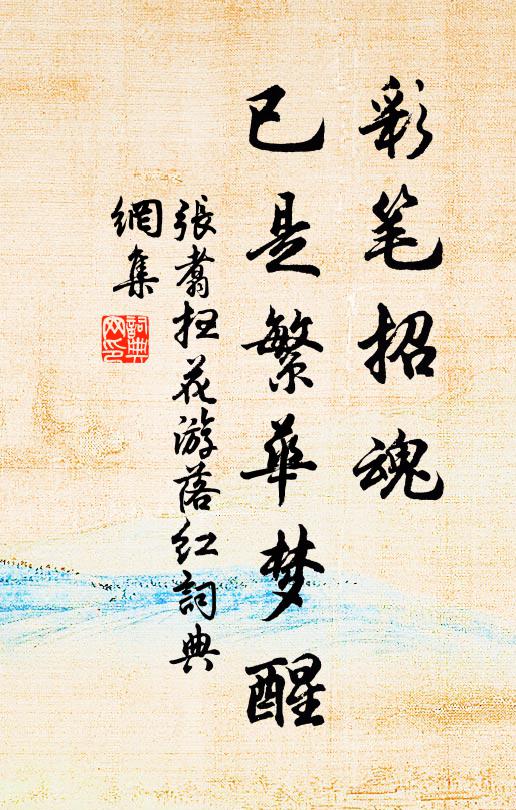 彩笔招魂
已是繁华梦醒
張翥扫花游落红詞典
網集
詞典
网印